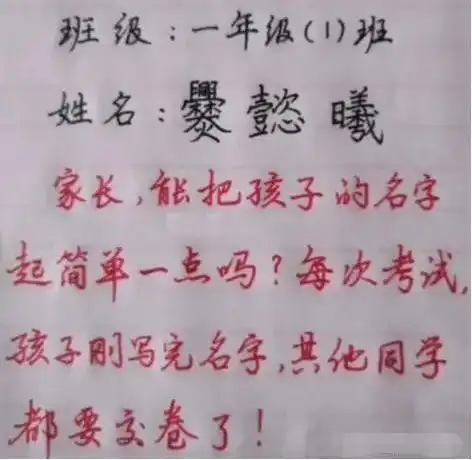 班级：一年级(1)班
姓名：爨懿曦
家长,能把孩子的名字
起简单一点吗？每次考试,
孩子刚写完名字,其他同学
都要交卷了！